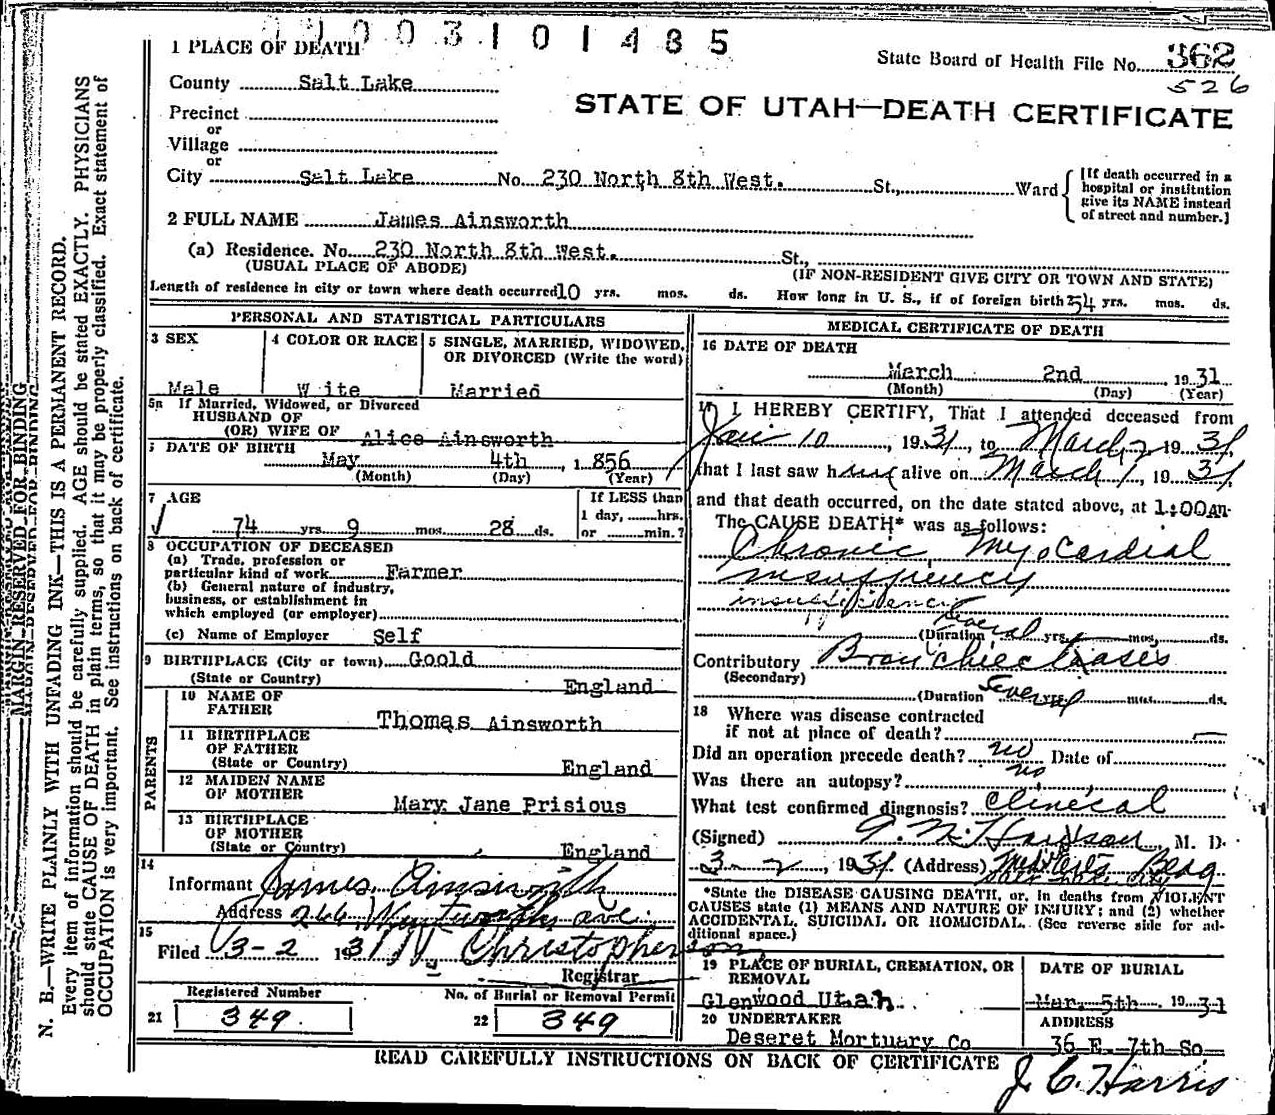 003101485
1 PLACE OF DEATH
State Board of Health File No. 362
526
County Salt Lake
STATE OF UTAH—DEATH CERTIFICATE
Precinct
or
Village
or
City Salt Lake No. 230 North 8th West. St., Ward
[If death occurred in a
hospital or institution
give its NAME instead
of street and number.]
2 FULL NAME James Ainsworth
(a) Residence. No. 230 North 8th West. St.,
(USUAL PLACE OF ABODE) (IF NON-RESIDENT GIVE CITY OR TOWN AND STATE)
Length of residence in city or town where death occurred 10 yrs. mos. ds. How long in U. S., if of foreign birth 54 yrs. mos. ds.
PERSONAL AND STATISTICAL PARTICULARS
3 SEX
Male
4 COLOR OR RACE
W ite
5 SINGLE, MARRIED, WIDOWED,
OR DIVORCED (Write the word)
Married
5a If Married, Widowed, or Divorced
HUSBAND OF
(OR) WIFE OF Alice Ainsworth
DATE OF BIRTH
May 4th, 1856
(Month) (Day) (Year)
7 AGE
74 yrs. 9 mos. 28 ds.
If LESS than
1 day, hrs.
or min.?
8 OCCUPATION OF DECEASED
(a) Trade, profession or
particular kind of work Farmer
(b) General nature of industry,
business, or establishment in
which employed (or employer)
(c) Name of Employer Self
9 BIRTHPLACE (City or town) Goold
(State or Country) England
PARENTS
10 NAME OF
FATHER Thomas Ainsworth
11 BIRTHPLACE
OF FATHER
(State or Country) England
12 MAIDEN NAME
OF MOTHER Mary Jane Prisious
13 BIRTHPLACE
OF MOTHER
(State or Country) England
14
Informant James Ainsworth
Address 266 Wentworth ave.
15
Filed 3-2 1931 Christopherson
Registrar
Registered Number
21 349
No. of Burial or Removal Permit
22 349
MEDICAL CERTIFICATE OF DEATH
16 DATE OF DEATH
March 2nd 1931
(Month) (Day) (Year)
17 I HEREBY CERTIFY, That I attended deceased from
Jan 10, 1931, to March 2 1931,
that I last saw him alive on March 1, 1931,
and that death occurred, on the date stated above, at 1:00 AM.
The CAUSE DEATH* was as follows:
Chronic Myocardial
insuffiency
insufficiency
(Duration Several yrs. mos. ds.
Contributory Bronchiectasis
(Secondary)
(Duration Several yrs. mos. ds.
18 Where was disease contracted
if not at place of death?
Did an operation precede death? no Date of
Was there an autopsy? no
What test confirmed diagnosis? Clinical
(Signed) M. D.
3-2, 1931 (Address) Bldg
*State the DISEASE CAUSING DEATH, or, in deaths from VIOLENT
CAUSES state (1) MEANS AND NATURE OF INJURY; and (2) whether
ACCIDENTAL, SUICIDAL OR HOMICIDAL. (See reverse side for ad-
ditional space.)
19 PLACE OF BURIAL, CREMATION, OR
REMOVAL
Glenwood Utah
DATE OF BURIAL
Mar. 5th. 1931
20 UNDERTAKER
Deseret Mortuary Co
ADDRESS
36 E. 7th So.
READ CAREFULLY INSTRUCTIONS ON BACK OF CERTIFICATE
J. C. Harris
MARGIN RESERVED FOR BINDING
N. B.—WRITE PLAINLY WITH UNFADING INK—THIS IS A PERMANENT RECORD.
Every item of information should be carefully supplied. AGE should be stated EXACTLY. PHYSICIANS
should state CAUSE OF DEATH in plain terms, so that it may be properly classified. Exact statement of
OCCUPATION is very important. See instructions on back of certificate.